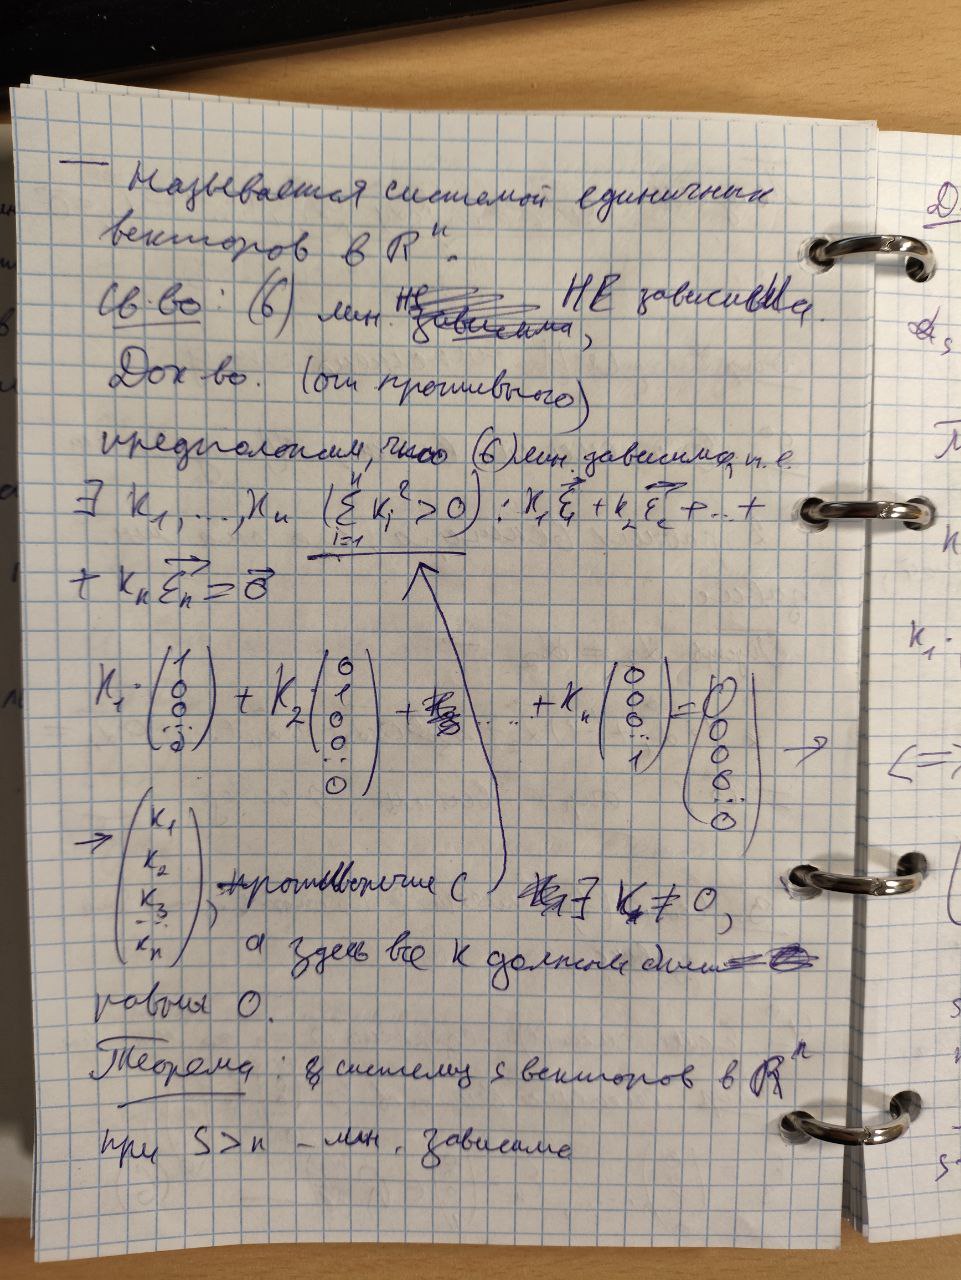 — Называется системой единичных
векторов в Rⁿ.
Св-во: (6) лин. НЕ зависима.
Док-во. (от противного)
предположим, что (6) лин. зависима, т.е.
∃ K₁, ..., Kₙ (∑ᵢ₌₁ⁿ Kᵢ² > 0): K₁ε⃗₁ + K₂ε⃗₂ + ... +
+ Kₙε⃗ₙ = 0⃗
K₁·(1 0 0 ... 0) + K₂·(0 1 0 0 ... 0) + ... + Kₙ(0 0 0 ... 1) = (0 0 0 0 ... 0) →
→ (K₁ K₂ K₃ ... Kₙ), противоречие с ∃ K₁ ≠ 0,
а здесь все K должны быть
равны 0.
Теорема: систему s векторов в Rⁿ
при S > n – лин. зависима